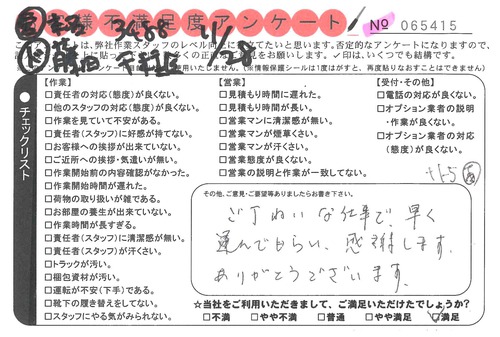 様不満足度アンケート
No 065415
3488
11/28
アンケートは、弊社作業スタッフのレベル向上に役立てたいと思います。否定的なアンケートになりますので、
(※情報保護シールは1度がすと、再度貼りなおすことはできません)
チェックリスト
【作業】
□責任者の対応(態度)が良くない。
□他のスタッフの対応(態度)が良くない。
□作業を見ていて不安がある。
□責任者(スタッフ)に好感が持てない。
□お客様への挨拶が出来ていない。
□ご近所への挨拶・気遣いが無い。
□作業開始前の内容確認がなかった。
□作業開始時間が遅れた。
□荷物の取り扱いが雑である。
□お部屋の養生が出来ていない。
□作業時間が長すぎる。
□責任者(スタッフ)に清潔感が無い。
□責任者(スタッフ)が汗くさい。
□トラックが汚い。
□梱包資材が汚い。
□運転が不安(下手)である。
□靴下の履き替えをしてない。
□スタッフにやる気がみられない。
【営業】
□見積もり時間に遅れた。
□見積もり時間が長い。
□営業マンに清潔感が無い。
□営業マンが煙草くさい。
□営業マンが汗くさい。
□営業態度が良くない。
□営業の説明と作業が一致してない。
【受付・その他】
□電話の対応が良くない。
□オプション業者の説明
・作業が良くない。
□オプション業者の対応
(態度)が良くない。
その他、ご意見・ご要望等ありましたらお書き下さい。
ご丁ねいな仕事で、早く
運んでもらい、感謝します。
ありがとうございます。
☆当社をご利用いただきまして、ご満足いただけたでしょうか?
□不満 □やや不満 □普通 □やや満足 ☑満足